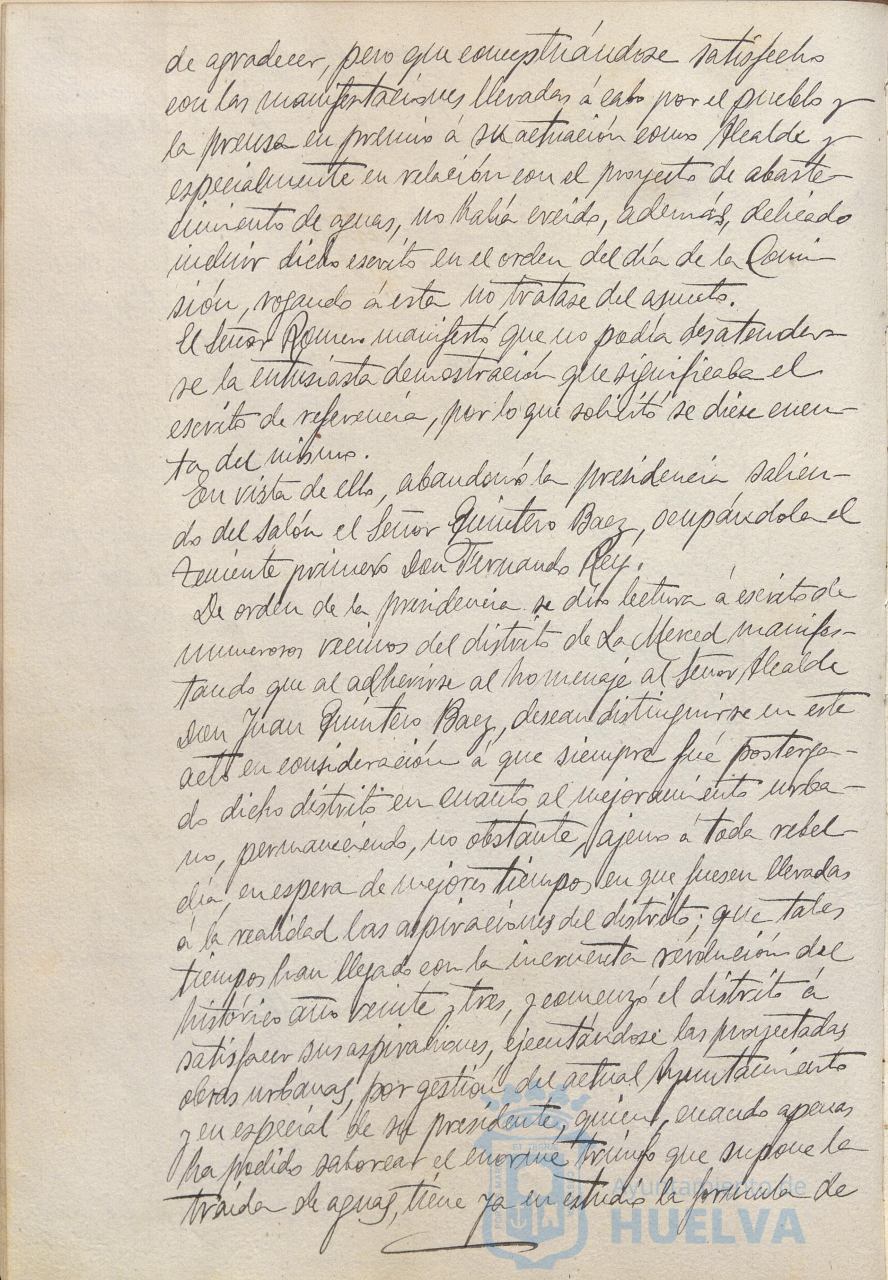 de agradecer, pero que conceptuándose satisfecho
con las manifestaciones llevadas á cabo por el pueblo y
la prensa en premio á su actuación como Alcalde y
especialmente en relación con el proyecto de abaste-
cimiento de aguas, no había creido, además, delicado
incluir dicho escrito en el orden del día de la Comi-
sión, rogando á esta no tratase del asunto.
El Señor Romero manifestó que no podía desatender-
se la entusiasta demostración que significaba el
escrito de referencia, por lo que solicitó se diese cuen-
ta del mismo.
En vista de ello, abandonó la presidencia salien-
do del salón el Señor Quintero Baez, ocupándola el
teniente primero Don Fernando Rey.
De orden de la presidencia se dió lectura á escrito de
numerosos vecinos del distrito de La Merced manifes-
tando que al adherirse al homenaje al Señor Alcalde
Don Juan Quintero Baez, desean distinguirse en este
acto en consideración á que siempre fué posterga-
do dicho distrito en cuanto al mejoramiento urba-
no, permaneciendo, no obstante, ajeno á toda rebel-
día, en espera de mejores tiempos en que fuesen llevadas
á la realidad las aspiraciones del distrito; que tales
tiempos han llegado con la incruenta revolución del
histórico año veinte y tres, y comenzó el distrito á
satisfacer sus aspiraciones, ejecutándose las proyectadas
obras urbanas, por gestión del actual Ayuntamiento
y en especial de su presidente, quien, cuando apenas
ha podido saborear el enorme triunfo que supone la
traída de aguas, tiene ya en estudio la fórmula de
Ayuntamiento de
HUELVA